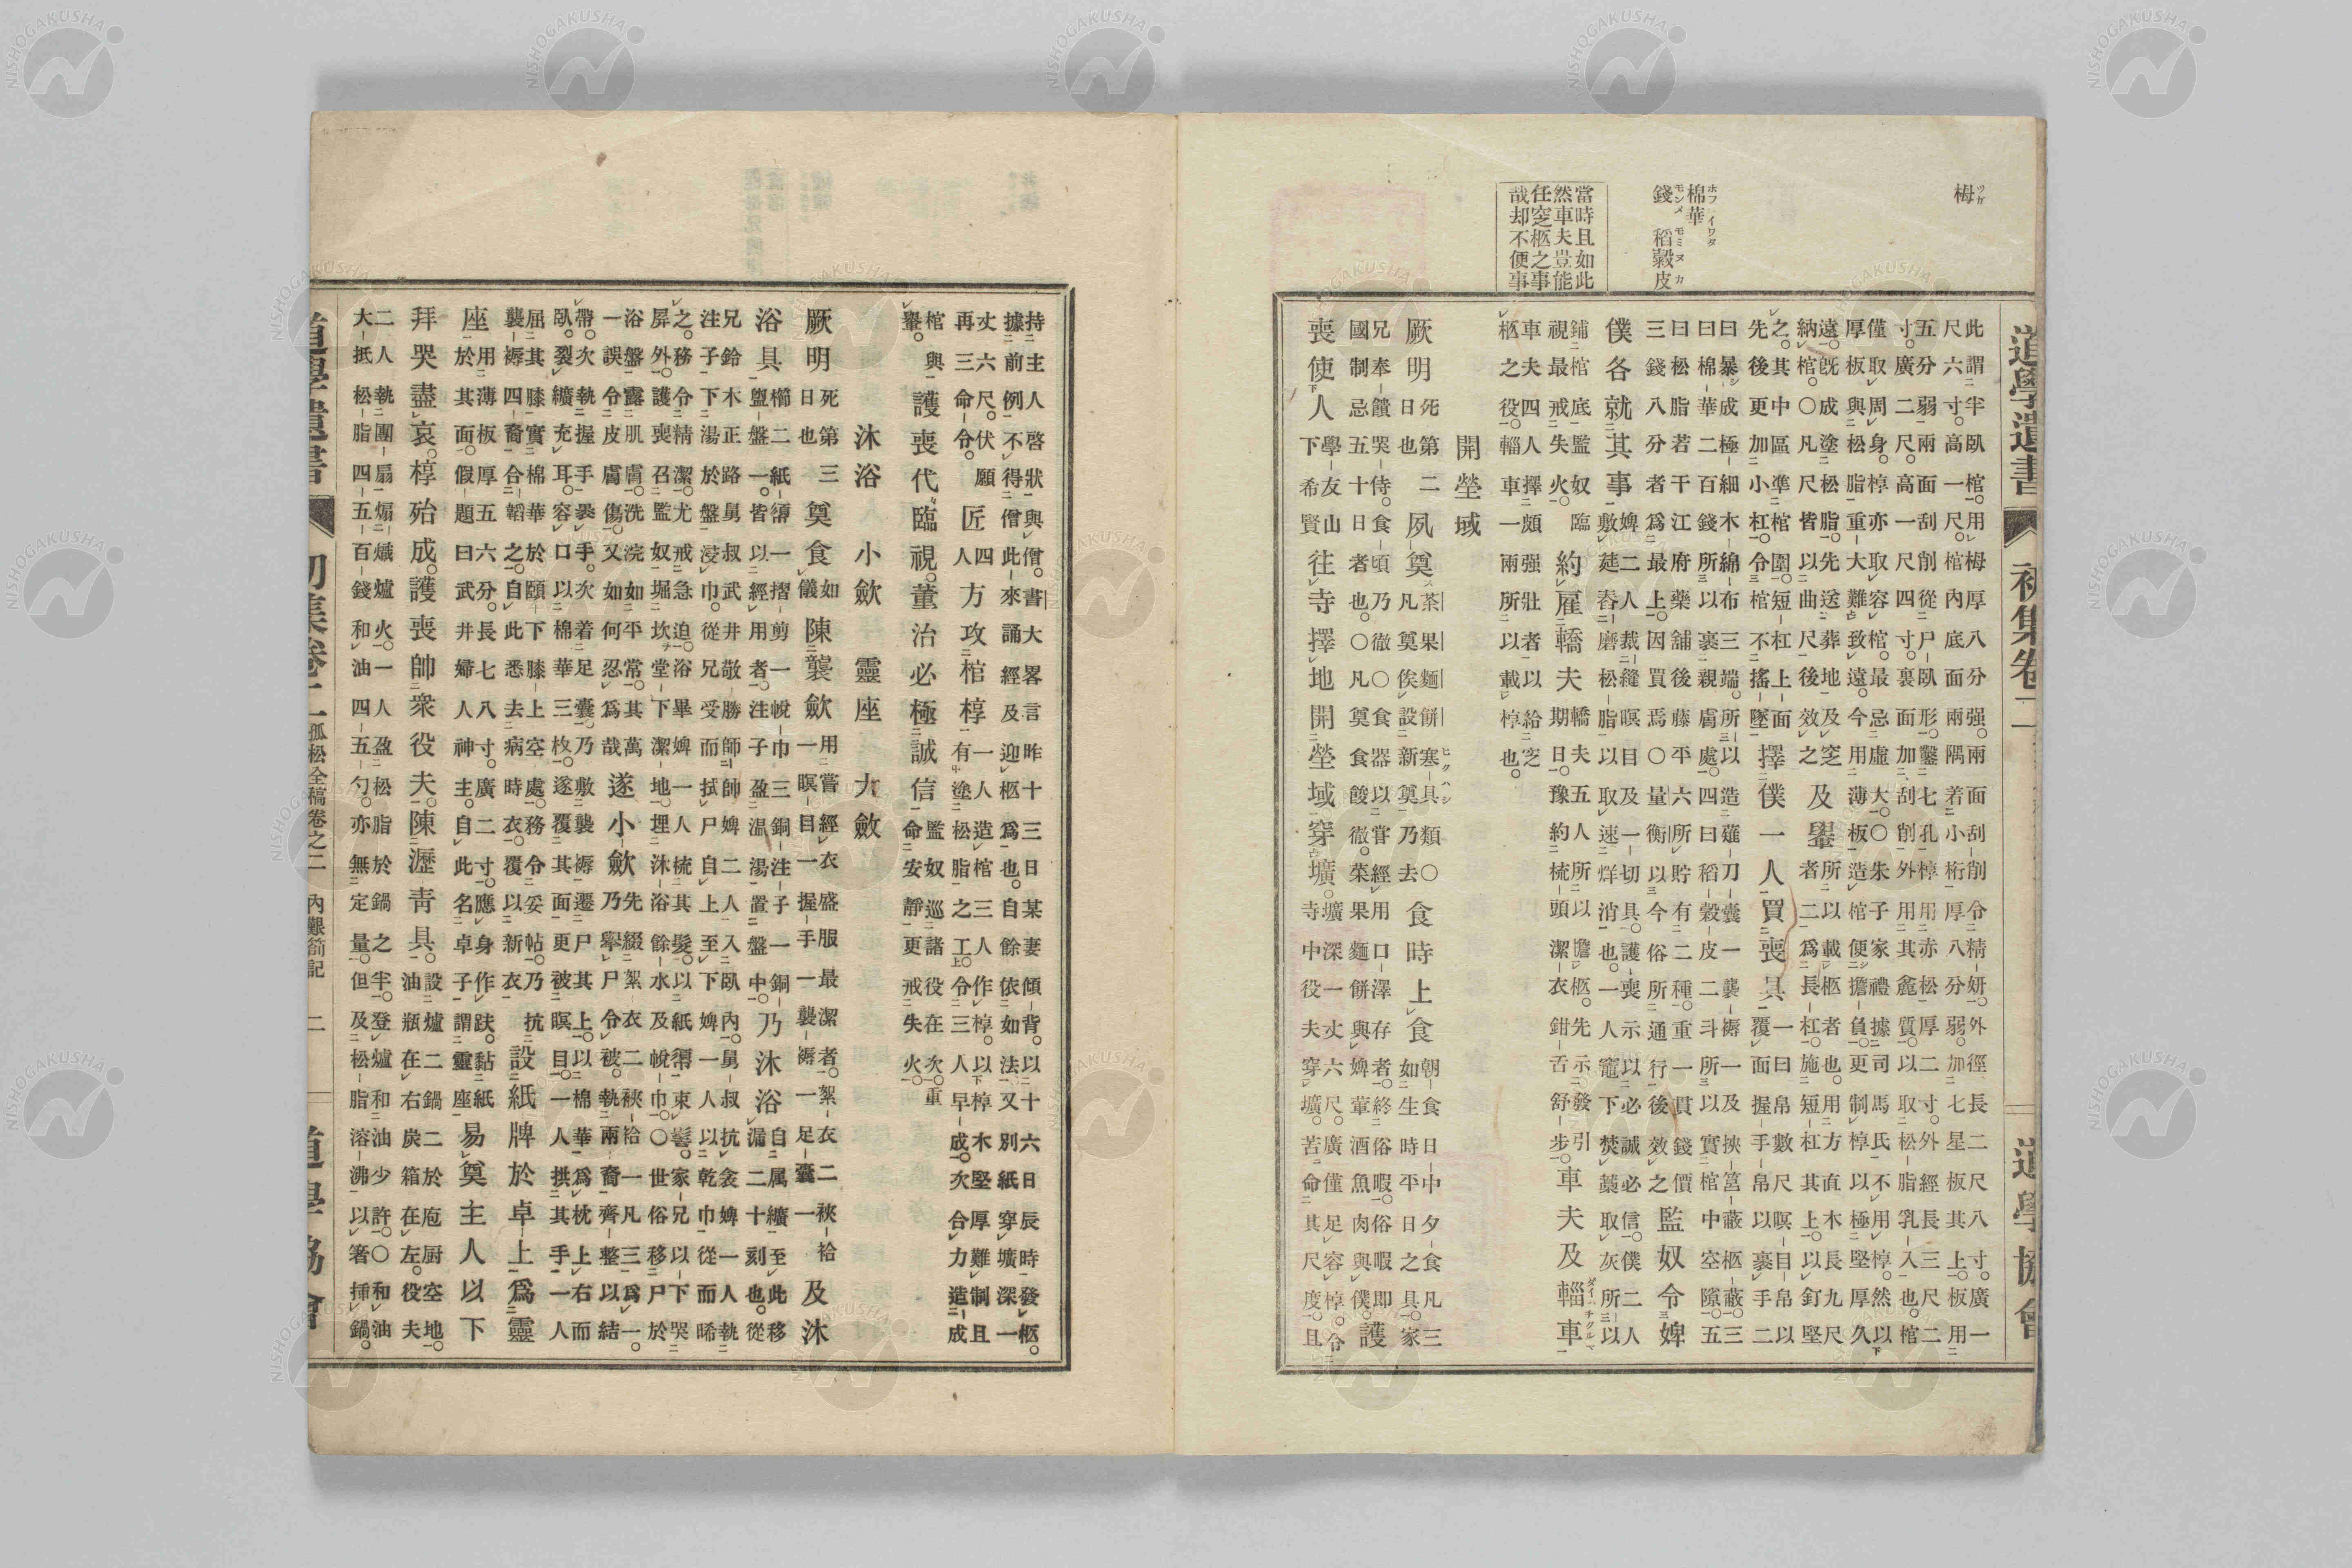 道學遺書 初集卷二 道學協會
栂 ツガ
棉華 ホフイワタ
錢 モンメ 稻穀皮 モミヌカ
當時且如此
然車夫豈能
任窆柩之事
哉却不便事
此謂半臥棺。用栂厚八分强。兩面刮削令精妍。外徑長二尺八寸。廣一
尺六寸高一尺。棺內底面兩隅若小桁厚八分弱加七星板其上。板用
五分弱兩面刮削從尸臥形鑿七孔椁用赤松厚二寸。外經長三尺二
寸。廣二尺。高一尺四寸裏面加刮削外用其麁質以取松脂乳入也。棺
僅取周身。椁亦取容棺。最忌虛大。○朱子家禮據司馬氏不用椁。然以
厚板與松脂重大難致遠。今用薄板造棺便擔負更制椁以極堅厚久
遠。既成塗松脂。先送葬地及窆
納棺。○凡尺皆以曲尺後效之
及轝
所以載柩者也。用方直木長九尺
者二爲長杠。施短杠其上。以釘堅
之。其中區準棺圍。短杠上面
先後更加小杠。令棺不搖墜
擇僕一人買喪具
一曰帛數尺瞑目帛以
覆面握手帛以裹手二
曰暴成極細木綿布三端。所以造薤刀囊一襲褥一及挾筥蔽柩蔽。三
曰棉華二百錢所以裹親膚處。四曰稻穀皮二斗所以實棺中空隙。五
曰松脂若干江府藥舖後藤平六所貯有二種。重一貫錢價
三錢八分者爲最上。因買焉○量衡以今俗所通行後效之
監奴令婢
僕各就其事
婢二人裁縫瞑目及一切具。護喪示以必誠必信。僕二人
敷莚舂磨松脂以取速烊消也。一人竈下焚藁取灰所以
鋪棺底監奴臨
視最戒失火。
約雇轎夫
轎夫五人所以擔柩。先示發引
期日。豫約梳頭潔衣鉗舌舒步。
車夫及輜車 ダイハチクルマ
車夫四人擇頗强壯者以給窆
柩之役。輜車一兩所以載椁也。
開塋域
厥明
死第二
日也
夙奠
茶果麵餅寒具類○
凡奠俟設新奠乃去
食時上食
朝食日中夕食凡三
如生時平日之具。家
兄奉饋哭侍。食頃乃徹○食器以嘗經用口澤存者。終俗暇。俗暇即
國制忌五十日者也。○凡奠食餕徹。菜果麵餅與婢葷酒魚肉與僕
護
喪使人
學友山
下希賢
往寺擇地開塋域穿壙。
壙深一丈六尺。廣僅足容椁。令
寺中役夫穿壙。苦命其尺度。且
持主人啓狀與僧。書大畧言昨十三日某妻傾背。以十六日辰時發柩。
據前例不得僧此來誦經及迎柩爲也。自餘依如法又別紙穿壙深一
丈六尺。伏願
再三命令。
匠
四
人
方攻棺椁
一人造棺三人作椁。以椁木堅厚難制且
有塗松脂之工。令三人早成。次合力造成
棺與
轝。
護喪代臨視。董治必極誠信
監奴巡諸役在次。重
命安靜更戒失火。
沐浴 小歛 靈座 大歛
厥明
死第三
日也
奠食
如
儀
陳襲歛
用嘗經衣盛服最潔者。絮衣二袂袷
一瞑目一握手一襲褥一足囊一
及沐
浴具
櫛二紙縟一摺剪一帨巾三銅注子一銅
盥盤一。皆以經用者。注子盈溫湯置盤中。
乃沐浴
自属纊至此移
漏二十刻也。從
兄鈴木正路舅叔武井敬勝師帥婢二人入臥內。舅叔抗衾婢一人執
注子下湯於盤浸巾。從兄受而拭尸自上至下婢一人以乾巾從而晞
之。務令精潔。尤戒急迫。浴畢婢一人梳其髮以紙縟束髻。家兄以下哭
屏外。護喪召監奴堀坎堂下潔地。埋沐浴餘水及帨巾。○世俗移尸於
浴盤露肌膚。洗浣如平常。其萬
一誤令皮膚傷。又如何忍爲哉
遂小歛
先綴絮衣二袂袷一凡三爲一。
乃擧尸令被。執兩裔齊整以結
帶。次執握手裂手。次着足囊。乃敷襲褥遷尸其上。以棉華爲枕上右而
臥。裂纊充耳。容口以棉華三枚。遂覆其面更被瞑目。一人拱其手一人
屈其膝實棉華於頤下膝上空處。務令妥帖。乃抗
襲褥四裔合韜之。自此悉去病時衣。覆以新衣
設紙牌於卓上爲靈
座
用薄板厚五六分。長七八寸。廣二寸。應身作趺。黏紙
於其面。假題曰武井婦人神主。自此名卓子謂靈座
易奠主人以下
拜哭盡哀。椁殆成。護喪帥衆役夫。陳瀝青具。
設爐二鍋二於庖厨空地。
油瓶在右炭箱在左。役夫
二人執團扇煽熾爐火。一人盈松脂於鍋之半。登爐和油少許。○和油
大抵松脂四五百錢和油四五勺。亦無定量。但及松脂溶沸以箸挿鍋。
道學遺書 初集卷二 孤松全稿卷之二 內艱箚記 二 道學協會
NISHOGAKUSHA